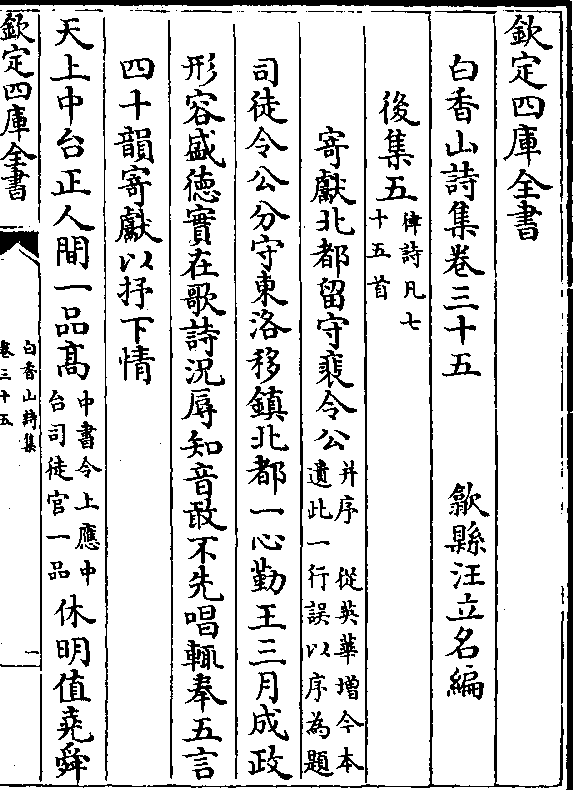 欽定四庫全書
白香山詩集卷三十五　歙縣汪立名編
後集五律詩凡七十五首
寄獻北都留守裴令公并序　從英華增今本遺此一行誤以序為題
司徒令公分守東洛移鎮北都一心勤王三月成政
形容盛德實在歌詩況辱知音敢不先唱輒奉五言
四十韻寄獻以抒下情
天上中台正人間一品高中書令上應中台司徒官一品休明值堯舜
欽定四庫全書
白香山詩集
卷三十五
一